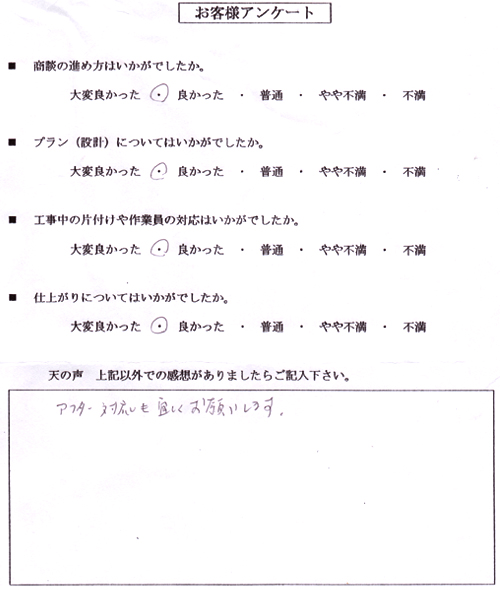 お客様アンケート
■ 商談の進め方はいかがでしたか。
大変良かった ・ 良かった ・ 普通 ・ やや不満 ・ 不満
■ プラン（設計）についてはいかがでしたか。
大変良かった ・ 良かった ・ 普通 ・ やや不満 ・ 不満
■ 工事中の片付けや作業員の対応はいかがでしたか。
大変良かった ・ 良かった ・ 普通 ・ やや不満 ・ 不満
■ 仕上がりについてはいかがでしたか。
大変良かった ・ 良かった ・ 普通 ・ やや不満 ・ 不満
天の声 上記以外での感想がありましたらご記入下さい。
アフター対応も宜しくお願いします。